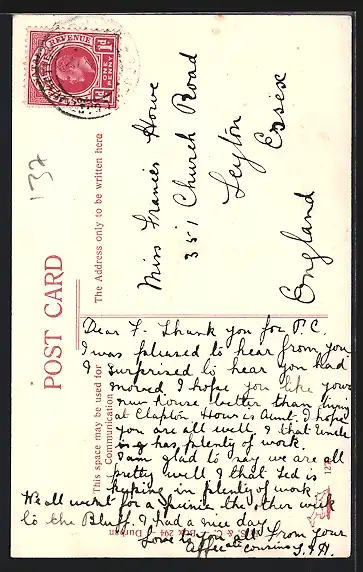 REVENUE
ONE PENNY
1d
137
POST CARD
The Address only to be written here
This space may be used for
Communication
Miss Frances Howe
351 Church Road
Leyton
Essex
England
Dear F. Thank you for P.C.
I was pleased to hear from you
I surprised to hear you had
moved I hope you like your
new house better than living
at Clapton How is Aunt. I hope
you are all well, & that Uncle
has plenty of work.
I am glad to say we are all
pretty well & that Ted is
keeping in plenty of work
We all went for a picnic the other week
to the Bluff. & had a nice day
Love to you all from your
Affec at cousins
Box 291 - Durban